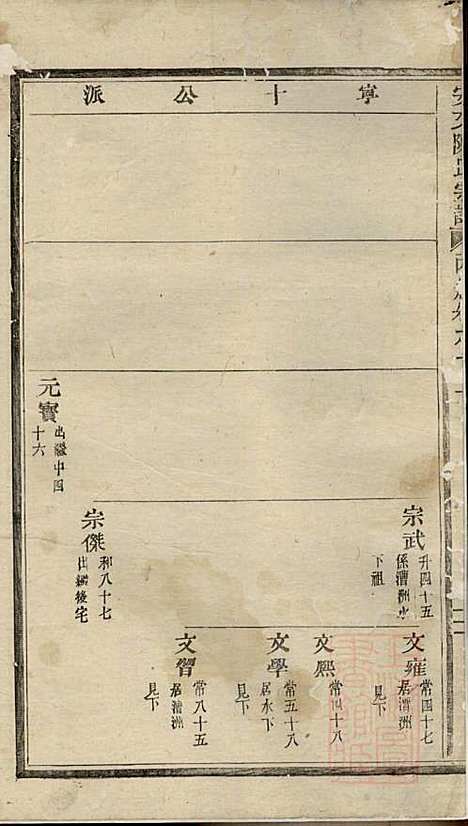 寧十公派
宗武
升四十五
係漕洲水
下祖
文雍
常四十七
居漕洲
見下
文熙
常四十八
文學
常五十八
居水下
文習
常八十五
居漕洲
見下
宗傑
和八十七
出繼後宅
元寶
出繼中四
十六